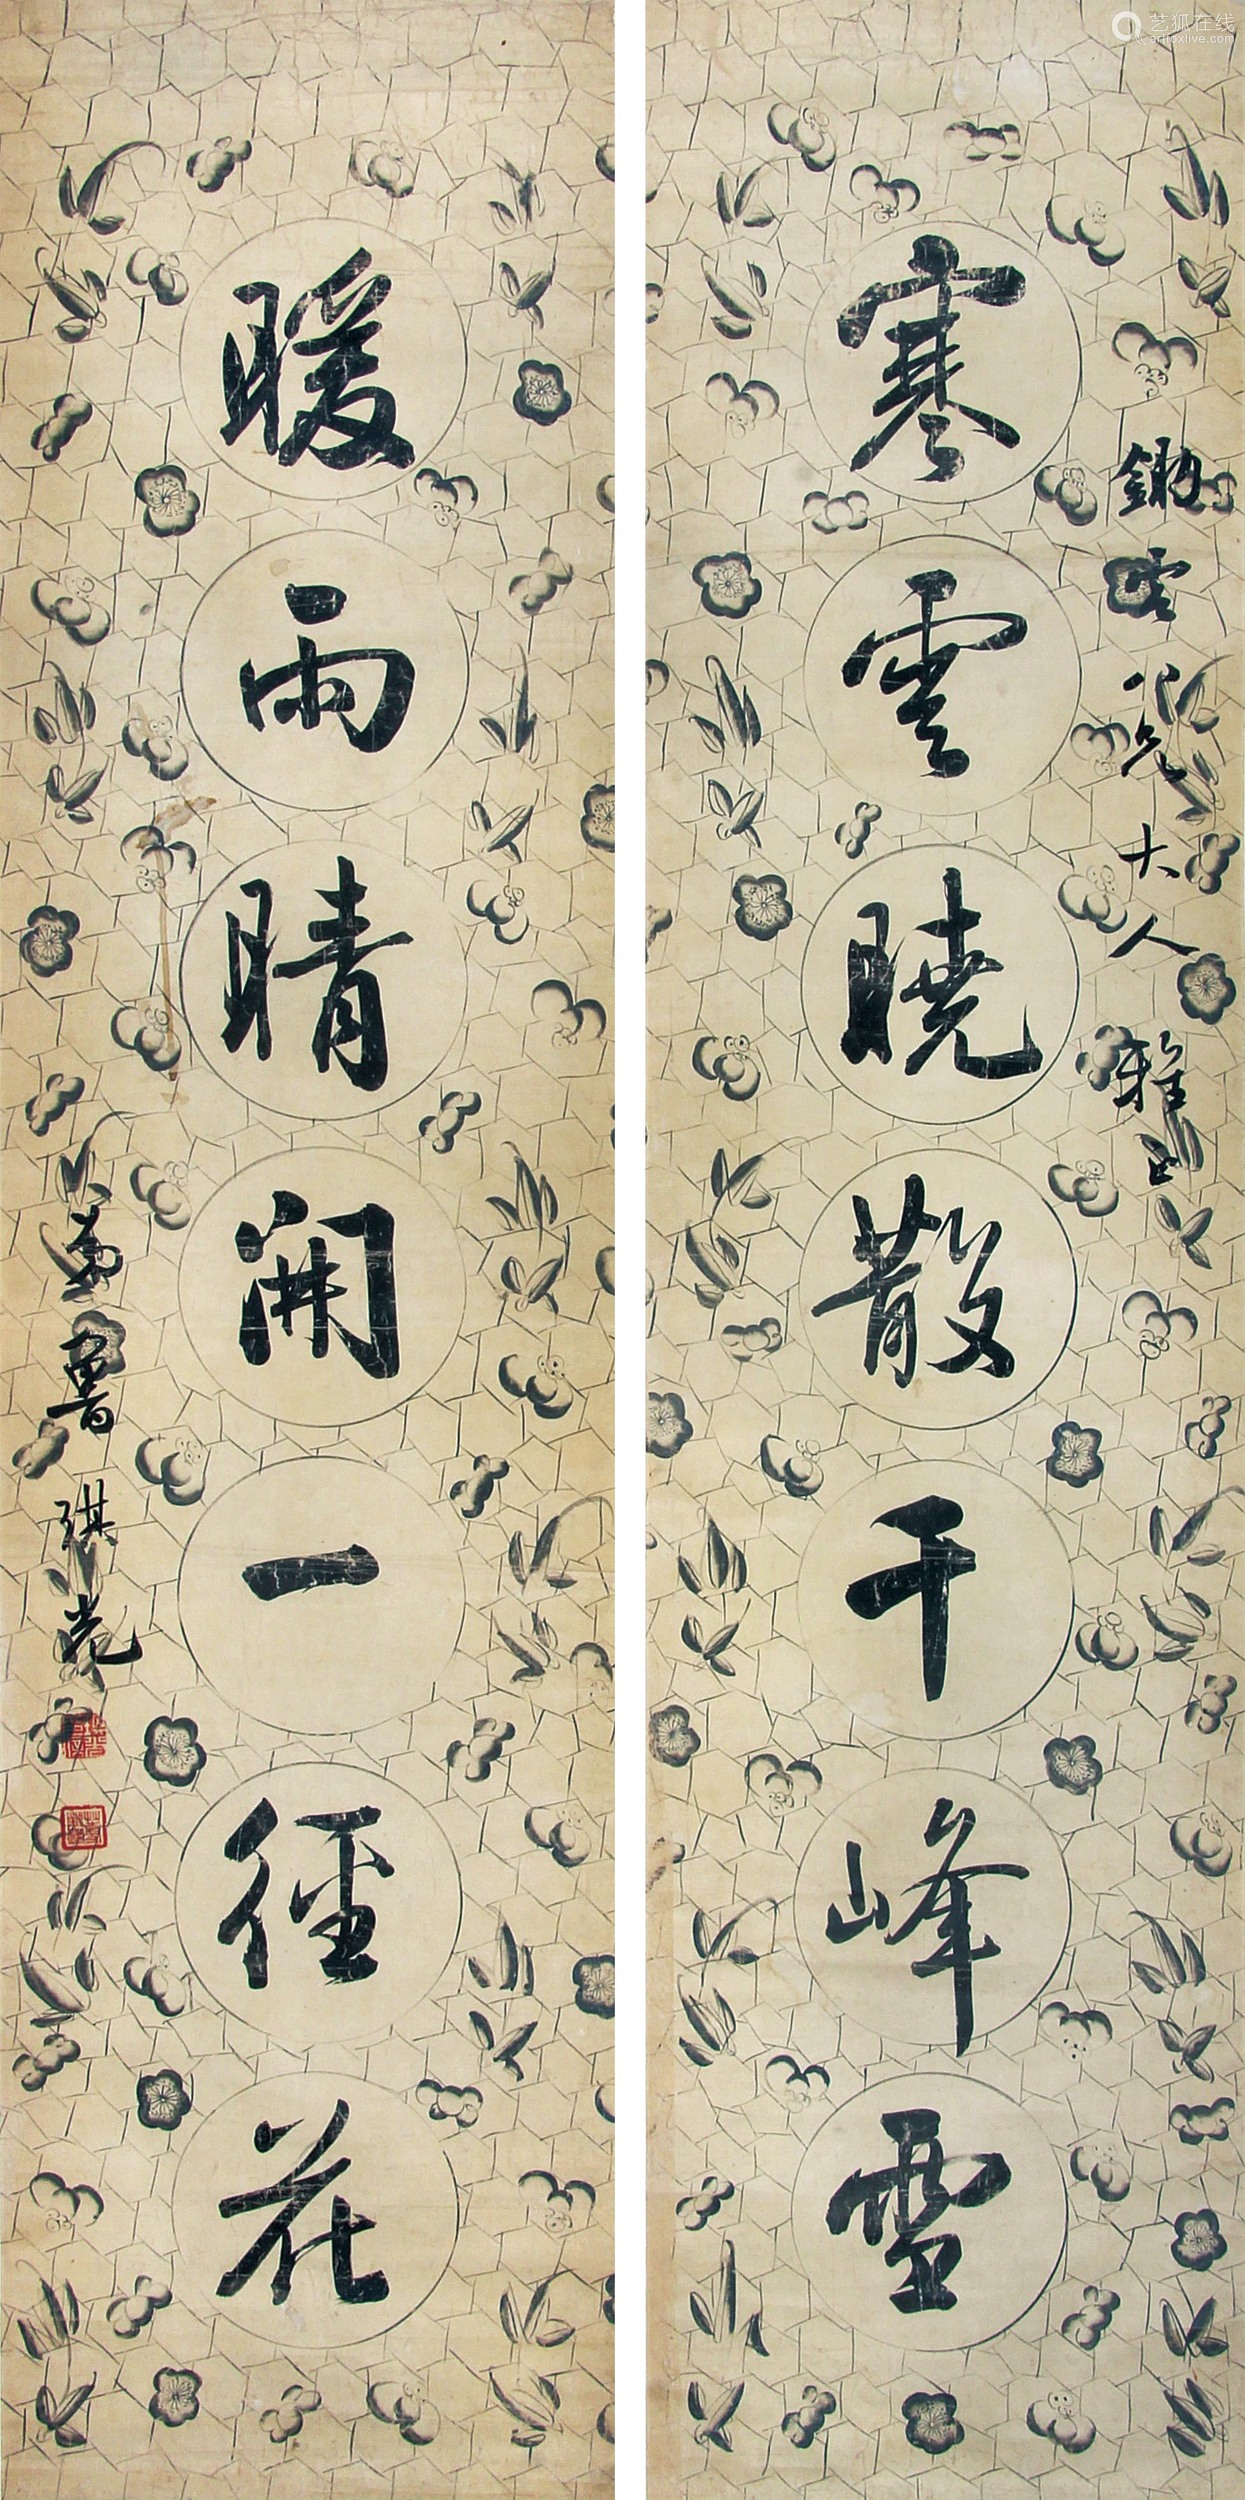 寒雲曉散千峰雪
鋤雲公兄大人雅正
暖雨晴開一徑花
曹琪光
艺狐在线
artfoxlive.com